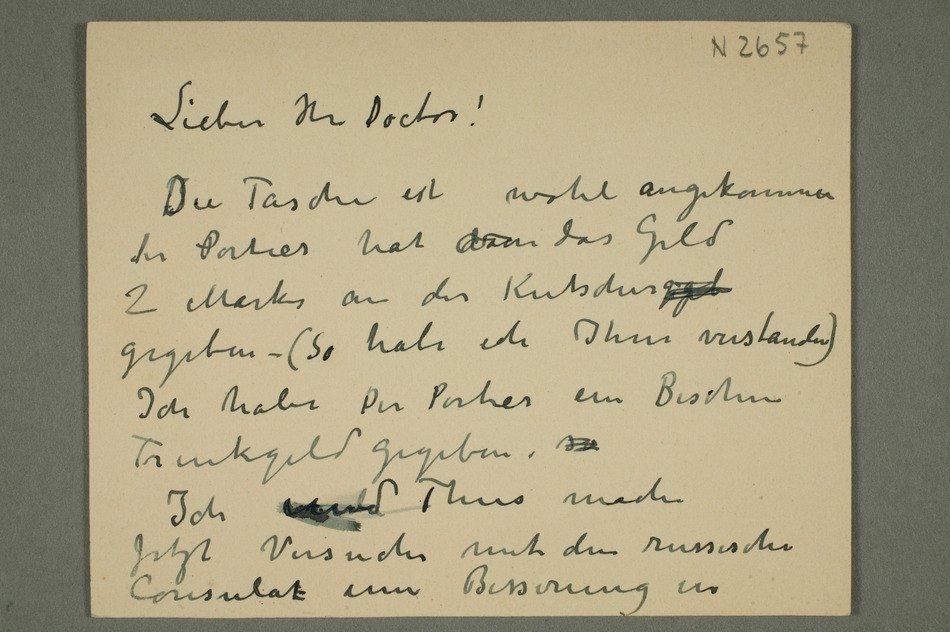 N 2657
Lieber Hr Doctor!
Die Tasche ist wohl angekommen
der Portier hat das Geld
2 Marks an der Kutscher
gegeben - (So habe ich Ihnen verstanden)
Ich habe Der Portier ein Bischen
Trinkgeld gegeben.
Ich mache
Jetzt Versuche mit dem russische
Consulat um Besserung in